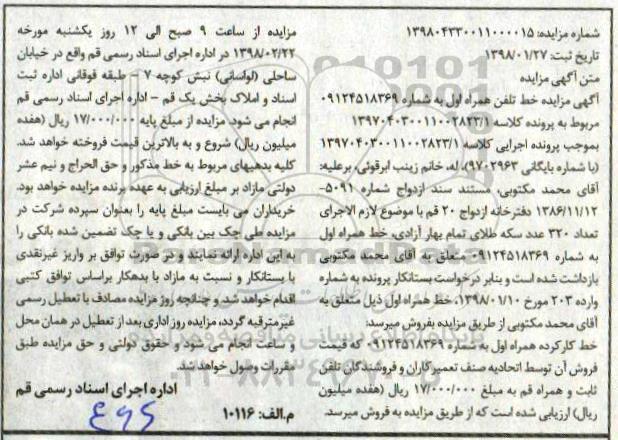 شماره مزایده: ۱۳۹۸۰۴۳۳۰۰۱۱۰۰۰۰۱۵
تاریخ ثبت: ۱۳۹۸/۰۱/۲۷
متن آگهی مزایده
آگهی مزایده خط تلفن همراه اول به شماره ۰۹۱۲۴۵۱۸۳۶۹
مربوط به پرونده کلاسه ۱۳۹۷۰۴۰۳۰۰۱۱۰۰۲۸۲۳/۱
بموجب پرونده اجرایی کلاسه ۱۳۹۷۰۴۰۳۰۰۱۱۰۰۲۸۲۳/۱
(با شماره بایگانی ۹۷۰۲۹۶۳) له، خانم زینب ابرقوئی، برعلیه:
آقای محمد مکتوبی، مستند سند ازدواج شماره ۵۰۹۱-
۱۳۸۶/۱۱/۱۲ دفترخانه ازدواج ۲۰ قم با موضوع لازم الاجرای
تعداد ۳۲۰ عدد سکه طلای تمام بهار آزادی، خط همراه اول
به شماره ۰۹۱۲۴۵۱۸۳۶۹ متعلق به آقای محمد مکتوبی
بازداشت شده است و بنابر درخواست بستانکار پرونده به شماره
وارده ۲۰۳ مورخ ۱۳۹۸/۰۱/۱۰، خط همراه اول ذیل متعلق به
آقای محمد مکتوبی از طریق مزایده بفروش میرسد:
خط کارکرده همراه اول به شماره ۰۹۱۲۴۵۱۸۳۶۹ که قیمت
فروش آن توسط اتحادیه صنف تعمیرکاران و فروشندگان تلفن
ثابت و همراه قم به مبلغ ۱۷/۰۰۰/۰۰۰ ریال (هفده میلیون
ریال) ارزیابی شده است که از طریق مزایده به فروش میرسد.
مزایده از ساعت ۹ صبح الی ۱۲ روز یکشنبه مورخه
۱۳۹۸/۰۲/۲۲ در اداره اجرای اسناد رسمی قم واقع در خیابان
ساحلی (لواسانی) نبش کوچه ۷ - طبقه فوقانی اداره ثبت
اسناد و املاک بخش یک قم - اداره اجرای اسناد رسمی قم
انجام می شود. مزایده از مبلغ پایه ۱۷/۰۰۰/۰۰۰ ریال (هفده
میلیون ریال) شروع و به بالاترین قیمت فروخته خواهد شد.
کلیه بدهیهای مربوط به خط مذکور و حق الحراج و نیم عشر
دولتی مازاد بر مبلغ ارزیابی به عهده برنده مزایده خواهد بود.
خریداران می بایست مبلغ پایه را بعنوان سپرده شرکت در
مزایده طی چک بین بانکی و یا چک تضمین شده بانکی را
به این اداره ارائه نمایند و در صورت توافق بر واریز غیرنقدی
با بستانکار و نسبت به مازاد با بدهکار براساس توافق کتبی
اقدام خواهد شد و چنانچه روز مزایده مصادف با تعطیل رسمی
غیرمترقبه گردد، مزایده روز اداری بعد از تعطیل در همان محل
و ساعت انجام می شود و حقوق دولتی و حق مزایده طبق
مقررات وصول خواهد شد.
اداره اجرای اسناد رسمی قم
م.الف: ۱۰۱۱۶